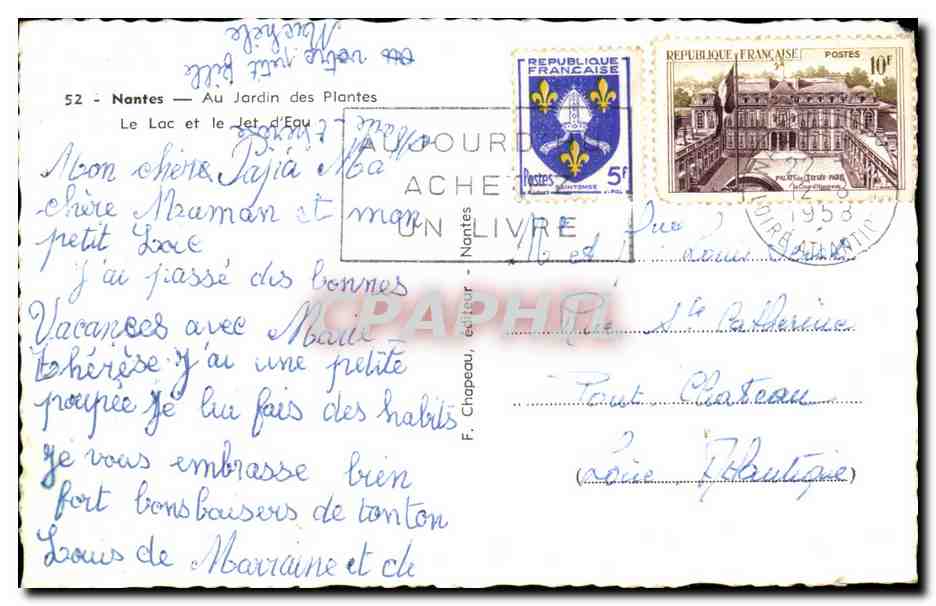 52 - Nantes — Au Jardin des Plantes
Le Lac et le Jet d'Eau
Mon chère Papa Ma
chère Maman et mon
petit Luc
J'ai passé des bonnes
Vacances avec Marie -
thérèse J'ai une petite
poupée je lui fais des habits
Je vous embrasse bien
fort bons baisers de tonton
Louis de Marraine et de
Marie-thérèse
votre petit fille
Michèle
F. Chapeau, éditeur - Nantes
REPUBLIQUE
FRANÇAISE
Postes 5F
SAINTONGE
REPUBLIQUE FRANÇAISE POSTES
10F
PALAIS DE L'ELYSÉE PARIS
AUJOURD
ACHETEZ
UN LIVRE
12-8
1958
LOIRE ATLANTIQ
CPAPHIL
Mr et Louis
Rue Ste Catherine
Pont Chateau
(Loire Atlantique)